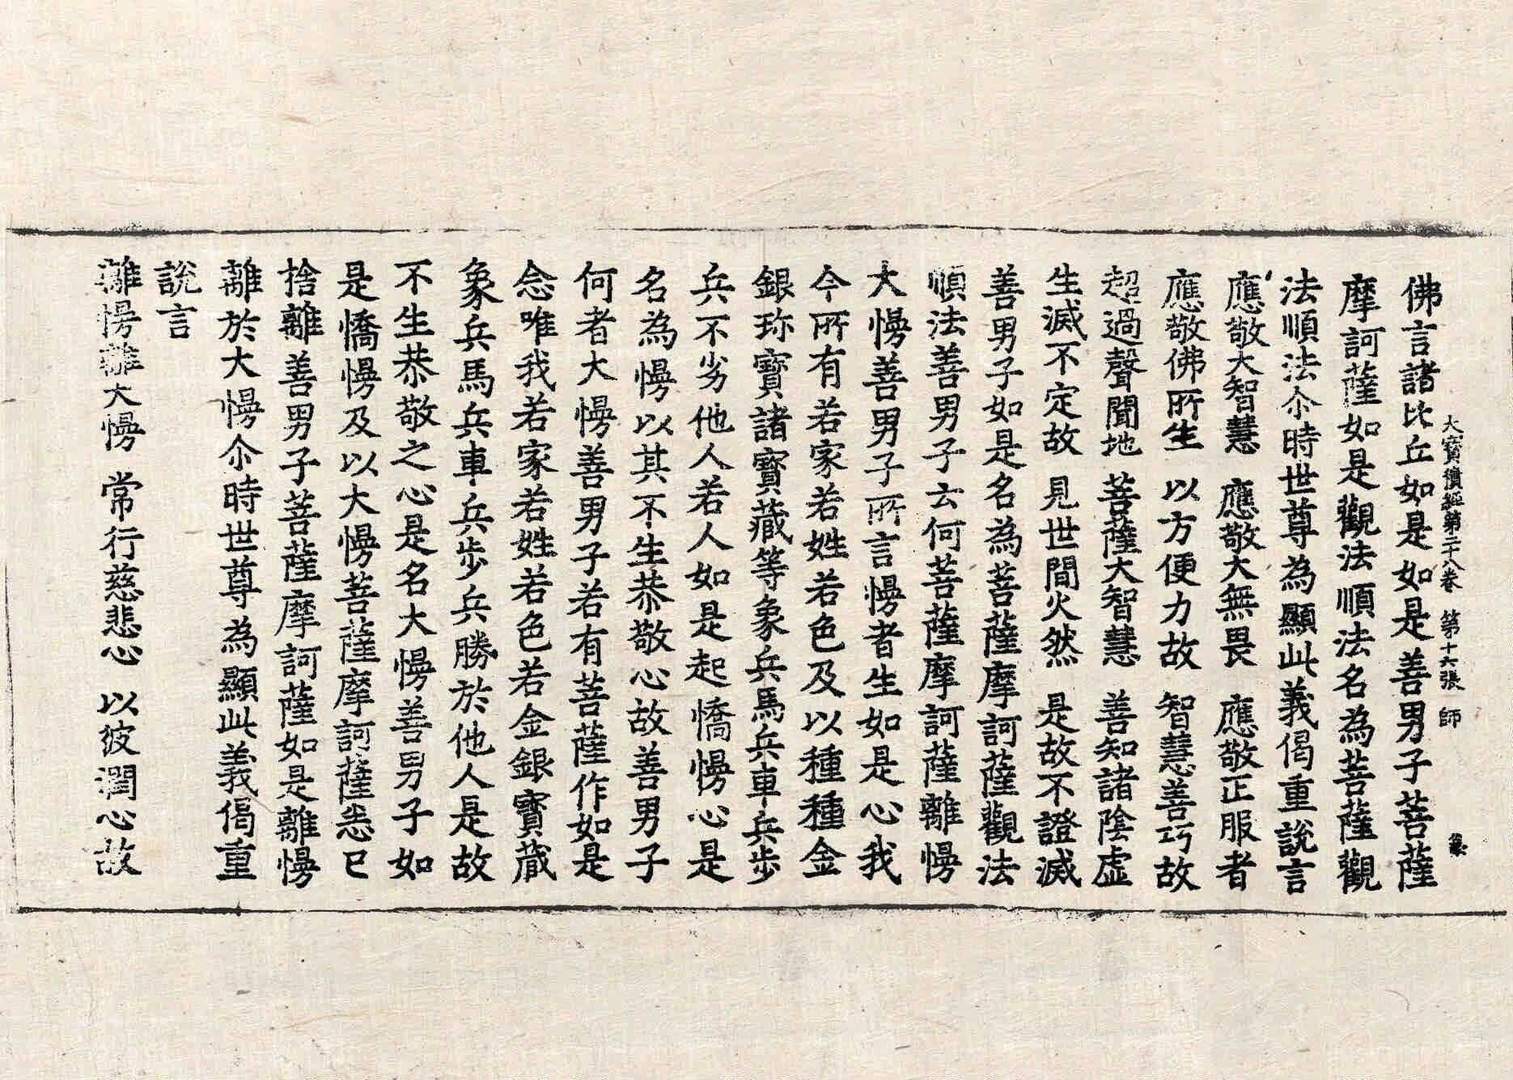 大寶積經第二十八卷 第十六張 師
佛言諸比丘如是如是善男子菩薩
摩訶薩如是觀法順法名為菩薩觀
法順法尒時世尊為顯此義偈重說言
應敬大智慧 應敬大無畏 應敬正服者
應敬佛所生 以方便力故 智慧善巧故
超過聲聞地 菩薩大智慧 善知諸陰虛
生滅不定故 見世間火然 是故不證滅
善男子如是名為菩薩摩訶薩觀法
順法善男子云何菩薩摩訶薩離慢
大慢善男子所言慢者生如是心我
今所有若家若姓若色及以種種金
銀珎寶諸寶藏等象兵馬兵車兵步
兵不劣他人若人如是起憍慢心是
名為慢以其不生恭敬心故善男子
何者大慢善男子若有菩薩作如是
念唯我若家若姓若色若金銀寶藏
象兵馬兵車兵步兵勝於他人是故
不生恭敬之心是名大慢善男子如
是憍慢及以大慢菩薩摩訶薩悉已
捨離善男子菩薩摩訶薩如是離慢
離於大慢尒時世尊為顯此義偈重
說言
離慢離大慢 常行慈悲心 以彼潤心故